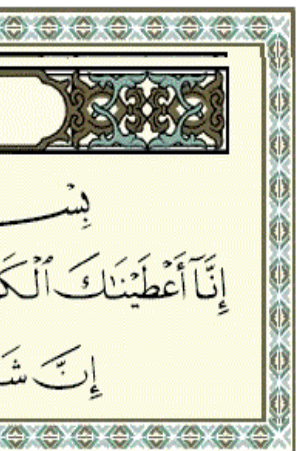 بِسْـ
إِنَّآ أَعْطَيْنَٰكَ ٱلْكَـ
إِنَّ شَـ